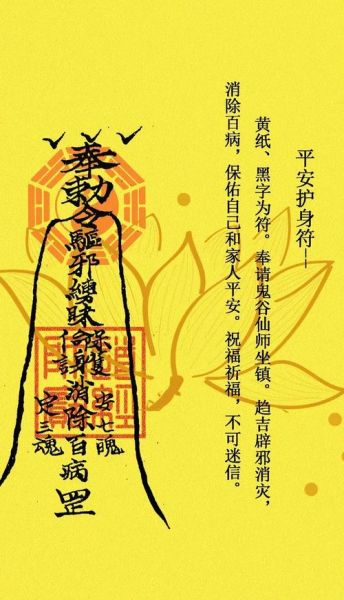 平安护身符--
黄纸、黑字为符。奉请鬼谷仙师坐镇。趋吉辟邪消灾，
消除百病，保佑自己和家人平安。祝福祈福，不可迷信。
安七魄
奉勅令驅邪身消除百病罡
定三魂